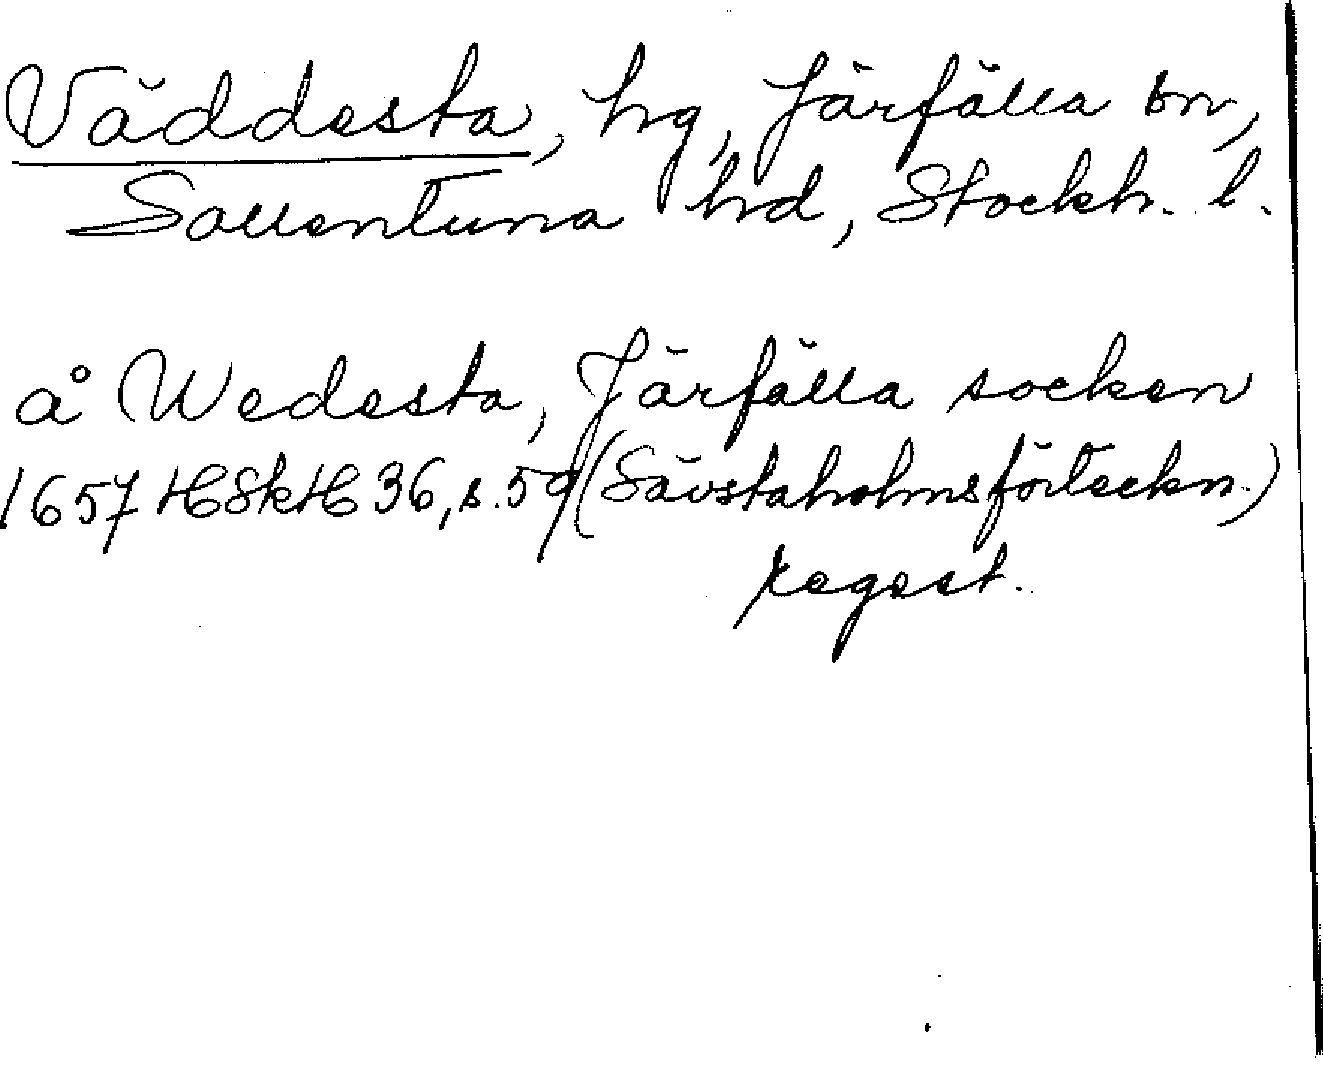 Väddesta, hg, Järfälla sn,
Sollentuna hd, Stockh. l.
å Wedesta, Järfälla socken
1657 HSkH 36, s. 59 (Sävstaholmsförteckn.)
regest.